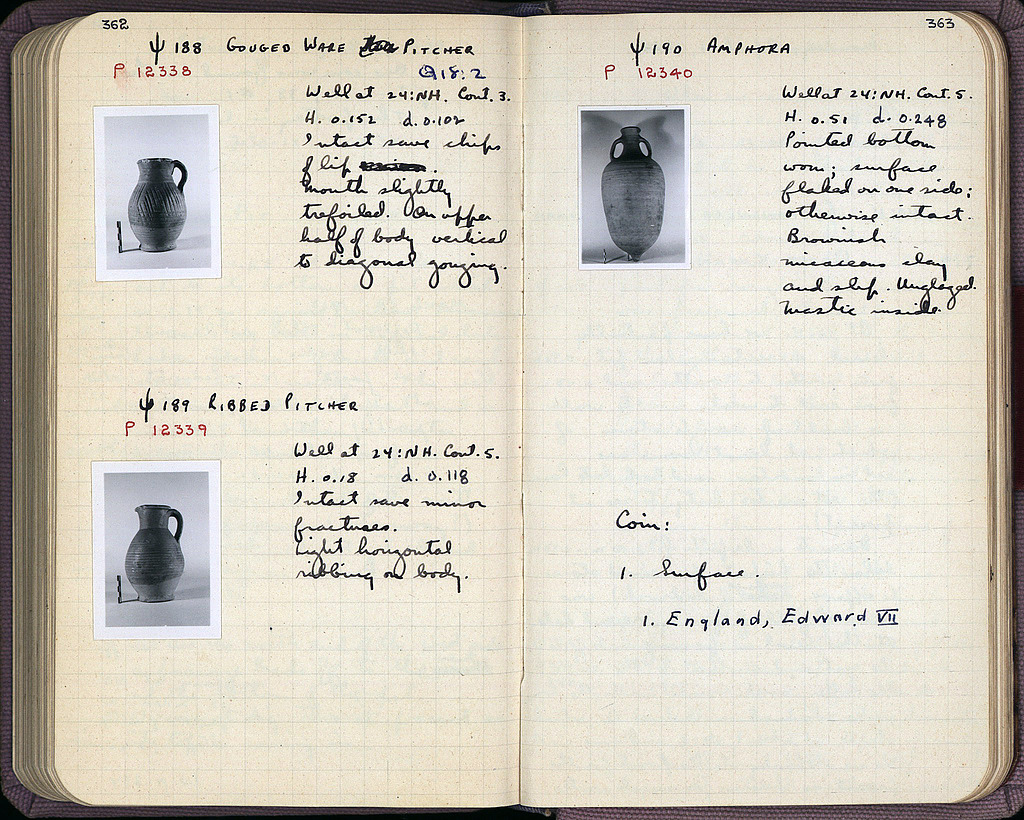 362
ψ 188 GOUGED WARE PITCHER
P 12338
Q18:2
Well at 24:NH. Cont. 3.
H. 0.152 d. 0.102
Intact save chips
of lip .
Mouth slightly
trefoiled. On upper
half of body vertical
to diagonal gouging.
ψ 189 RIBBED PITCHER
P 12339
Well at 24:NH. Cont. 5.
H. 0.18 d. 0.118
Intact save minor
fractures.
Light horizontal
ribbing on body.
363
ψ 190 AMPHORA
P 12340
Well at 24:NH. Cont. 5.
H. 0.51 d. 0.248
Pointed bottom
worn; surface
flaked on one side;
otherwise intact.
Brownish
micaceous clay
and slip. Unglazed.
Mastic inside.
Coin:
1. Surface.
1. England, Edward VII